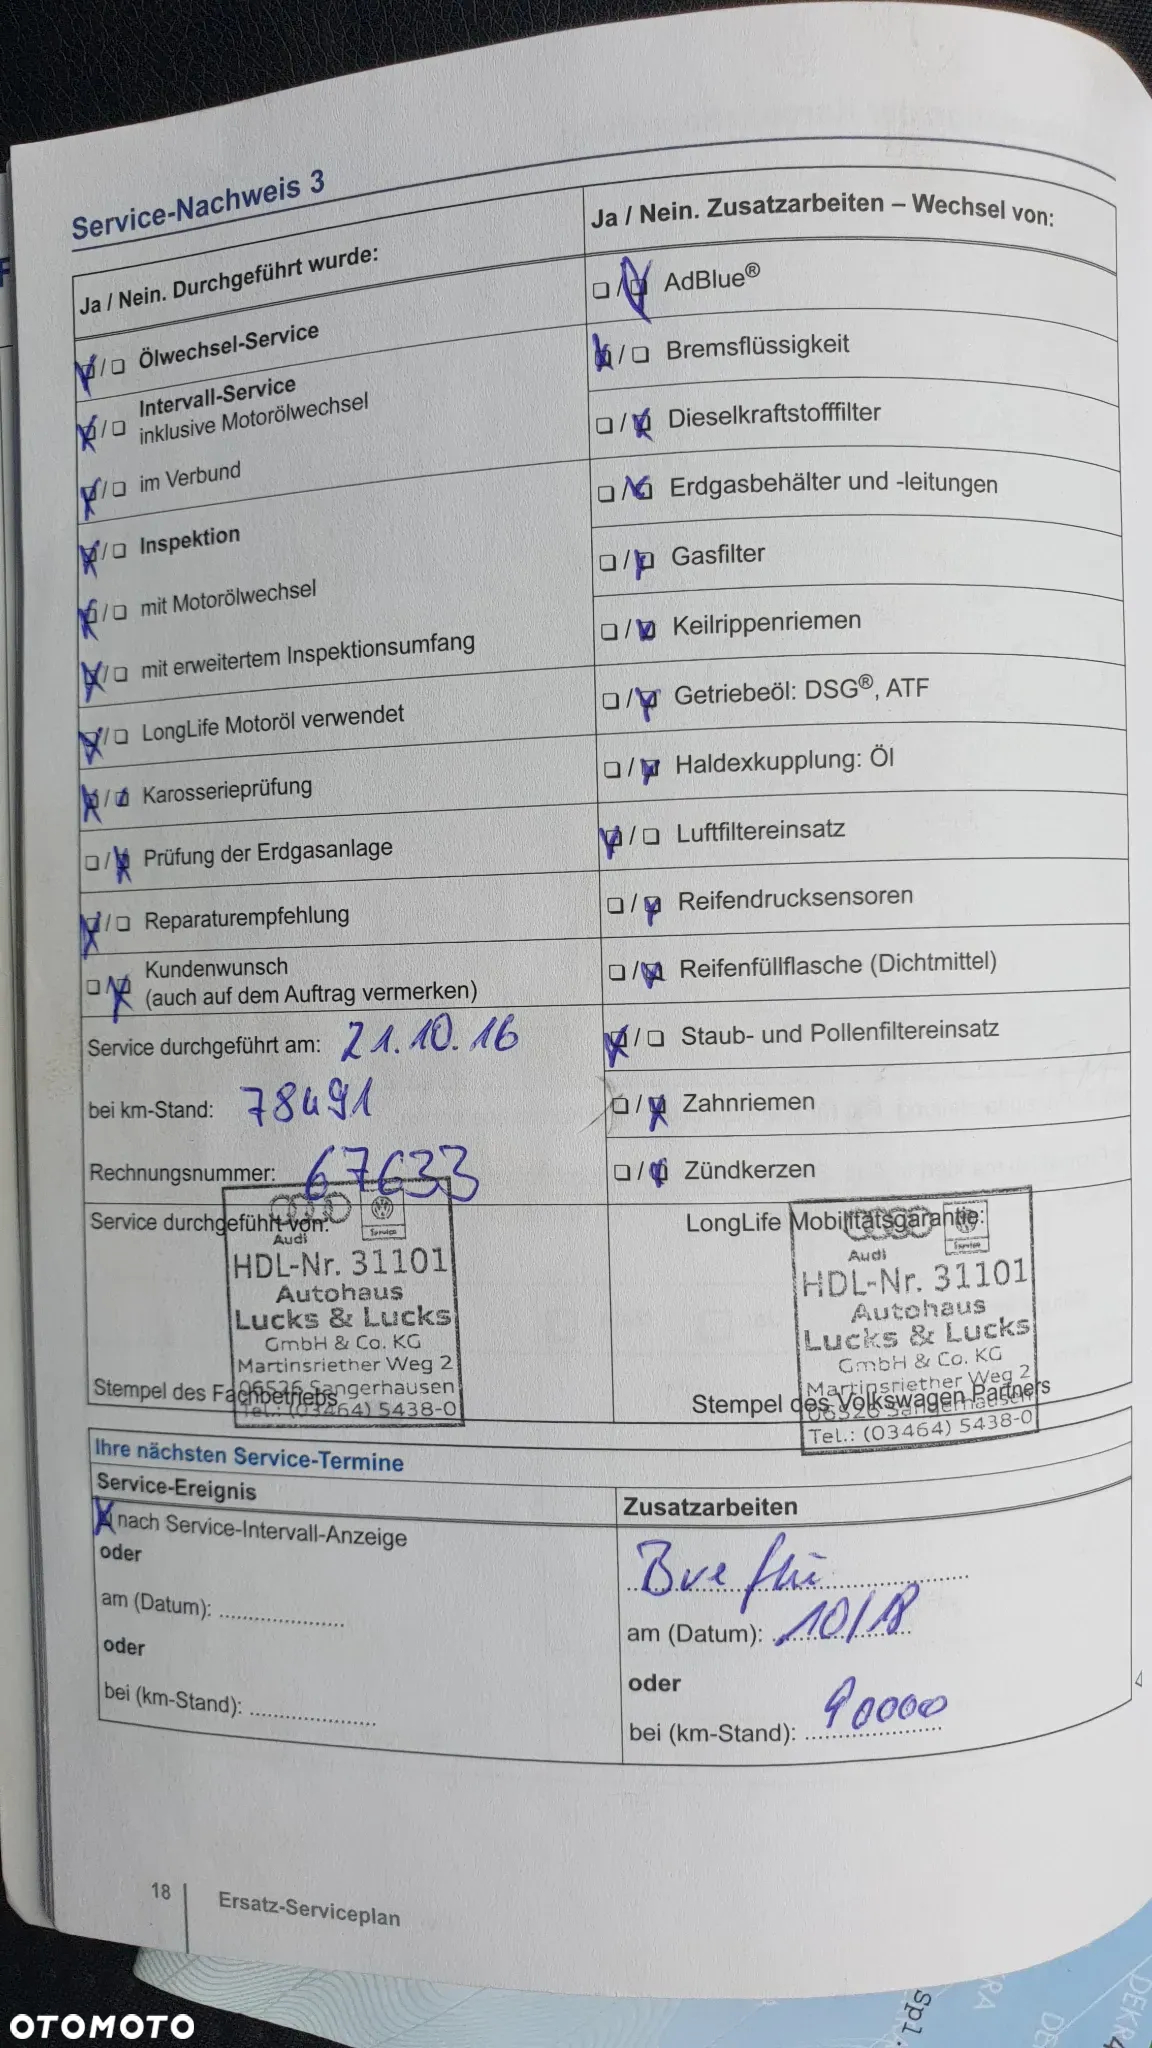 Service-Nachweis 3
Ja / Nein. Durchgeführt wurde:
❏/❏ Ölwechsel-Service
❏/❏ Intervall-Service
inklusive Motorölwechsel
❏/❏ im Verbund
❏/❏ Inspektion
❏/❏ mit Motorölwechsel
❏/❏ mit erweitertem Inspektionsumfang
❏/❏ LongLife Motoröl verwendet
❏/❏ Karosserieprüfung
❏/❏ Prüfung der Erdgasanlage
❏/❏ Reparaturempfehlung
❏/❏ Kundenwunsch
(auch auf dem Auftrag vermerken)
Service durchgeführt am: 21.10.16
bei km-Stand: 78491
Rechnungsnummer: 67633
Ja / Nein. Zusatzarbeiten – Wechsel von:
❏/❏ AdBlue®
❏/❏ Bremsflüssigkeit
❏/❏ Dieselkraftstofffilter
❏/❏ Erdgasbehälter und -leitungen
❏/❏ Gasfilter
❏/❏ Keilrippenriemen
❏/❏ Getriebeöl: DSG®, ATF
❏/❏ Haldexkupplung: Öl
❏/❏ Luftfiltereinsatz
❏/❏ Reifendrucksensoren
❏/❏ Reifenfüllflasche (Dichtmittel)
❏/❏ Staub- und Pollenfiltereinsatz
❏/❏ Zahnriemen
❏/❏ Zündkerzen
Service durchgeführt von:
Audi
Service
HDL-Nr. 31101
Autohaus
Lucks & Lucks
GmbH & Co. KG
Martinsriether Weg 2
06526 Sangerhausen
Tel.: (03464) 5438-0
Stempel des Fachbetriebs
LongLife Mobilitätsgarantie:
Audi
Service
HDL-Nr. 31101
Autohaus
Lucks & Lucks
GmbH & Co. KG
Martinsriether Weg 2
06526 Sangerhausen
Tel.: (03464) 5438-0
Stempel des Volkswagen Partners
Ihre nächsten Service-Termine
Service-Ereignis
nach Service-Intervall-Anzeige
oder
am (Datum): ....................
oder
bei (km-Stand): ....................
Zusatzarbeiten
am (Datum): 10/18
oder
bei (km-Stand): 90000
18
Ersatz-Serviceplan
OTOMOTO
DEKRA